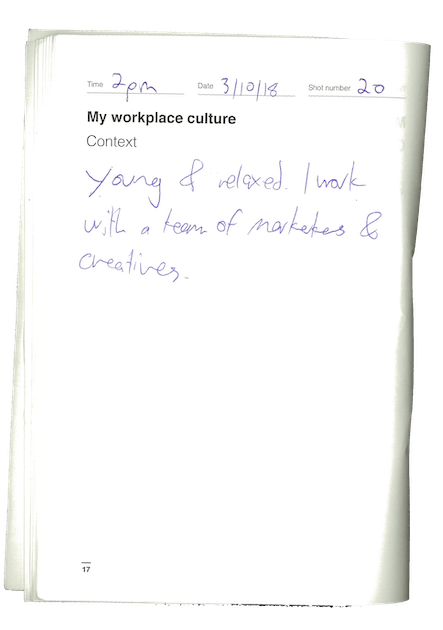 Time 2pm Date 3/10/18 Shot number 20
My workplace culture
Context
Young & relaxed. I work
with a team of marketers &
creatives.
17